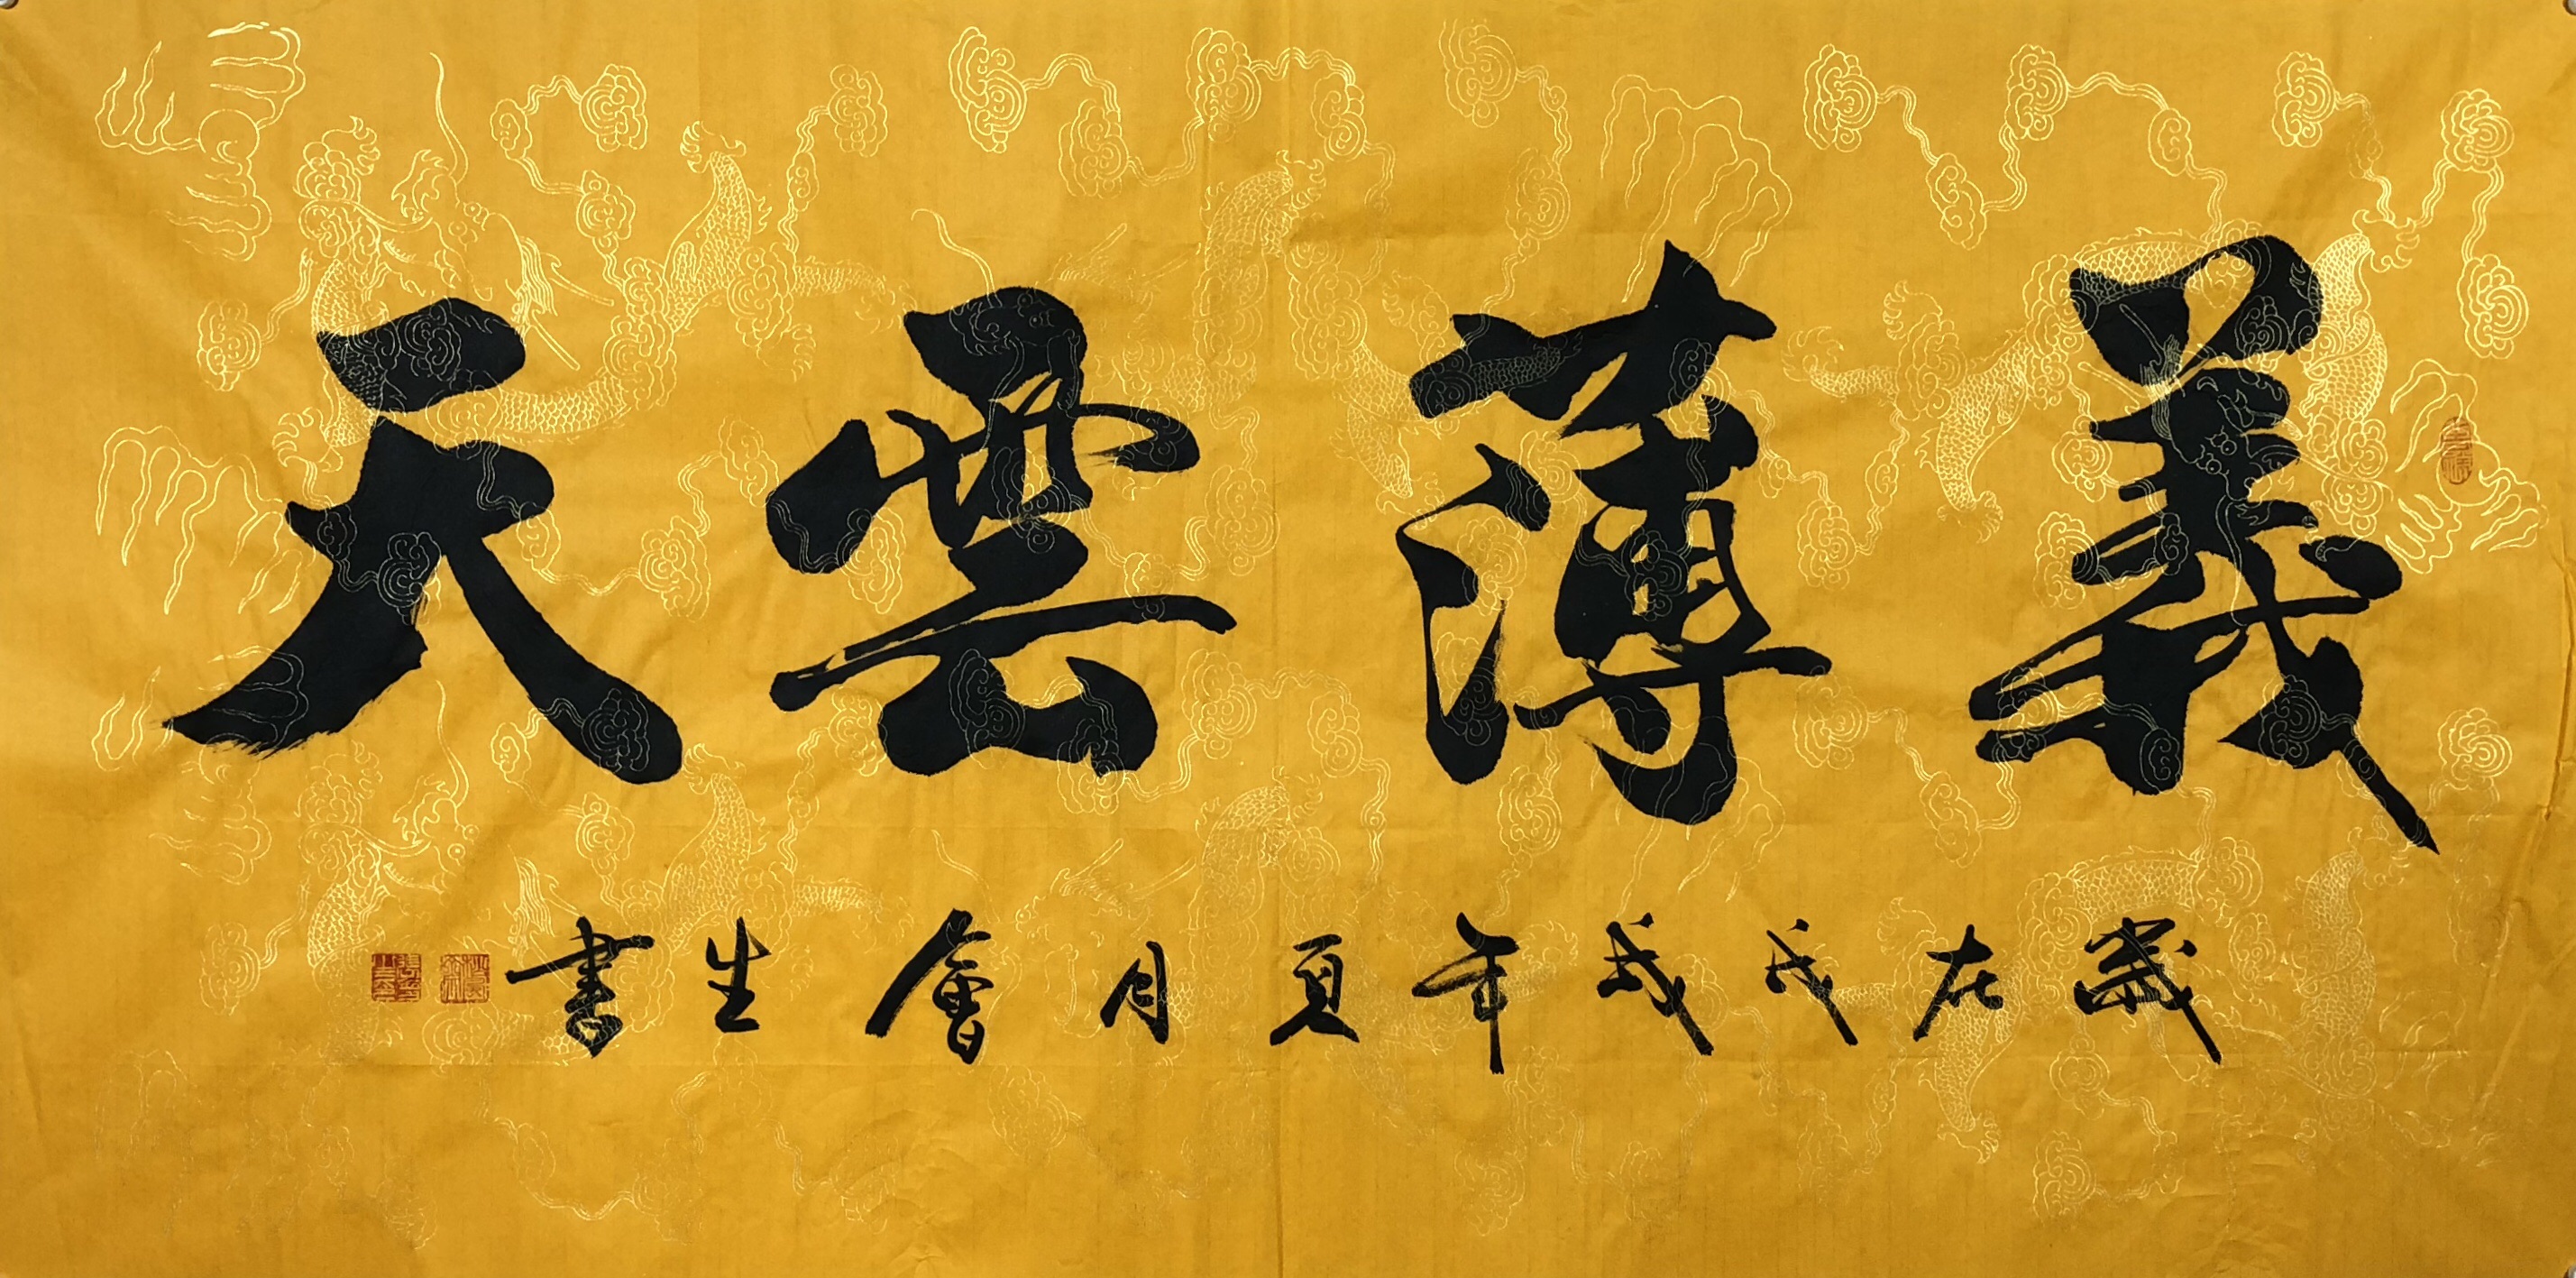 義薄雲天
歲在戊戌年夏月會生書